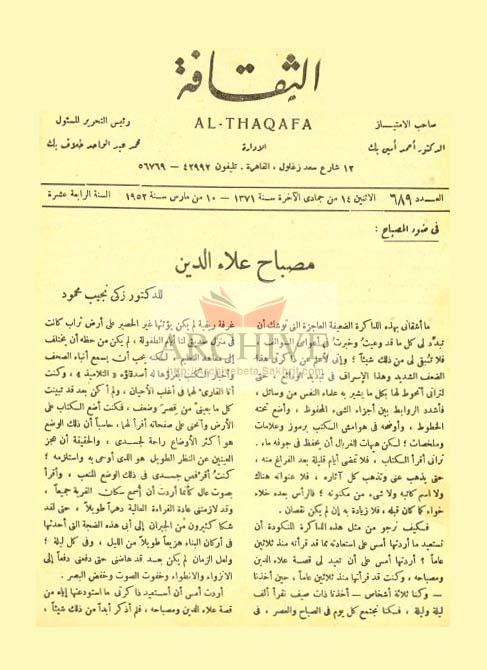 الثقافة
AL-THAQAFA
صاحب الامتياز
الدكتور أحمد أمين بك
الادارة
رئيس التحرير المسئول
محمد عبد الواحد خلاف بك
١٢ شارع سعد زغلول ، القاهرة . تليفون ٤٢٩٩٢ — ٥٦٧٦٩
العدد ٦٨٩ الاثنين ١٤ من جمادى الآخرة سنة ١٣٧١ — ١٠ من مارس سنة ١٩٥٢ السنة الرابعة عشرة
فى ضوء المصباح :
مصباح علاء الدين
للدكتور زكى نجيب محمود
ما أشقانى بهذه الذاكرة الضعيفة العاجزة التى توشك أن
تبدد لى كل ما قد وعيت وخبرت
فلا تبقى لى من ذلك شيئاً ؛ وإنى لأعرف من ذاكرتى هذا
الضعف الشديد وهذا الإسراف فى تبديد الودائع ، حتى
لترانى أتحوط لها بكل ما يشير به علماء النفس من وسائل ،
فأشدد الروابط بين أجزاء الشىء المحفوظ ، وأضع تحته
الخطوط ، وأوضحه فى هوامش الكتب برموز وعلامات
وملخصات ؛ لكن هيهات للغربال أن يحتفظ فى جوفه ماء .
ترانى أقرأ الكتاب ، فلا تمضى أيام قليلة بعد الفراغ منه ،
حتى يذهب عنى وتذهب كل آثاره ، فلا عنوانه هناك
ولا اسم كاتبه ولا شىء من مكنونه ؛ فالرأس بعده خلاء
خواء كما كان قبله ، فلا زيادة به إن لم يكن نقصان .
فكيف نرجو من مثل هذه الذاكرة المنكودة أن
تستعيد ما أردتها أمس على استعادته مما قد قرأته منذ ثلاثين
عاماً ؟ أردتها أمس على أن تعيد لى قصة علاء الدين
ومصباحه ، وكنت قد قرأتها منذ ثلاثين عاماً ، حين أخذنا
— وكنا ثلاثة أشخاص — أخذنا ذات صيف نقرأ ألف
ليلة وليلة ، فكنا نجتمع كل يوم فى الصباح والعصر ، فى
غرفة ريفية لم يكن يؤثثها غير الحصير على أرض تراب كانت
فى منزل صديق لنا أيام الطفولة ، لم يكن من حظه أن يختلف
إلى معاهد التعليم ، لكنه يحب أن يسمع أنباء الصحف
وأخبار الكتب يقرؤها له أصدقاؤه « التلاميذ » ، وكنت
أنا القارئ لهما فى أغلب الأحيان ، ولم أكن بعد قد تبينت
كل ما بعينىّ من قصر وضعف ، فكنت أضع الكتاب على
الأرض وأنحنى على صفحاته أقرأ لهما ، حاسباً أن ذلك الوضع
هو أكثر الأوضاع راحة لجسدى ، والحقيقة أن عجز
العينين عن النظر الطويل هو الذى أوحى به واستلزمه ؛
كنت أقوس جسدى فى ذلك الوضع المتعب ، وأقرأ
بصوت عال كأنما أردت أن أسمع سكان القرية جميعاً ،
وقد لازمتنى عادة القراءة العالية دهراً طويلاً ، حتى لقد
شكا كثيرون من الجيران إلى أبى هذه الضجة التى أحدثها
فى أركان البناء هزيعاً طويلاً من الليل ، وفى كل ليلة ؛
ولعل الزمان لم يكن بعد قد هاضنى حتى دفعنى دفعاً إلى
الانزواء والانطواء وخفوت الصوت وخفض البصر .
أردت أمس أن أستعيد ذاكرتى ما استودعتها إياه من
قصة علاء الدين ومصباحه ، فلم أذكر أبداً من ذلك شيئاً ،
ARCHIVE
http://Archivebeta.Sakhrit.com